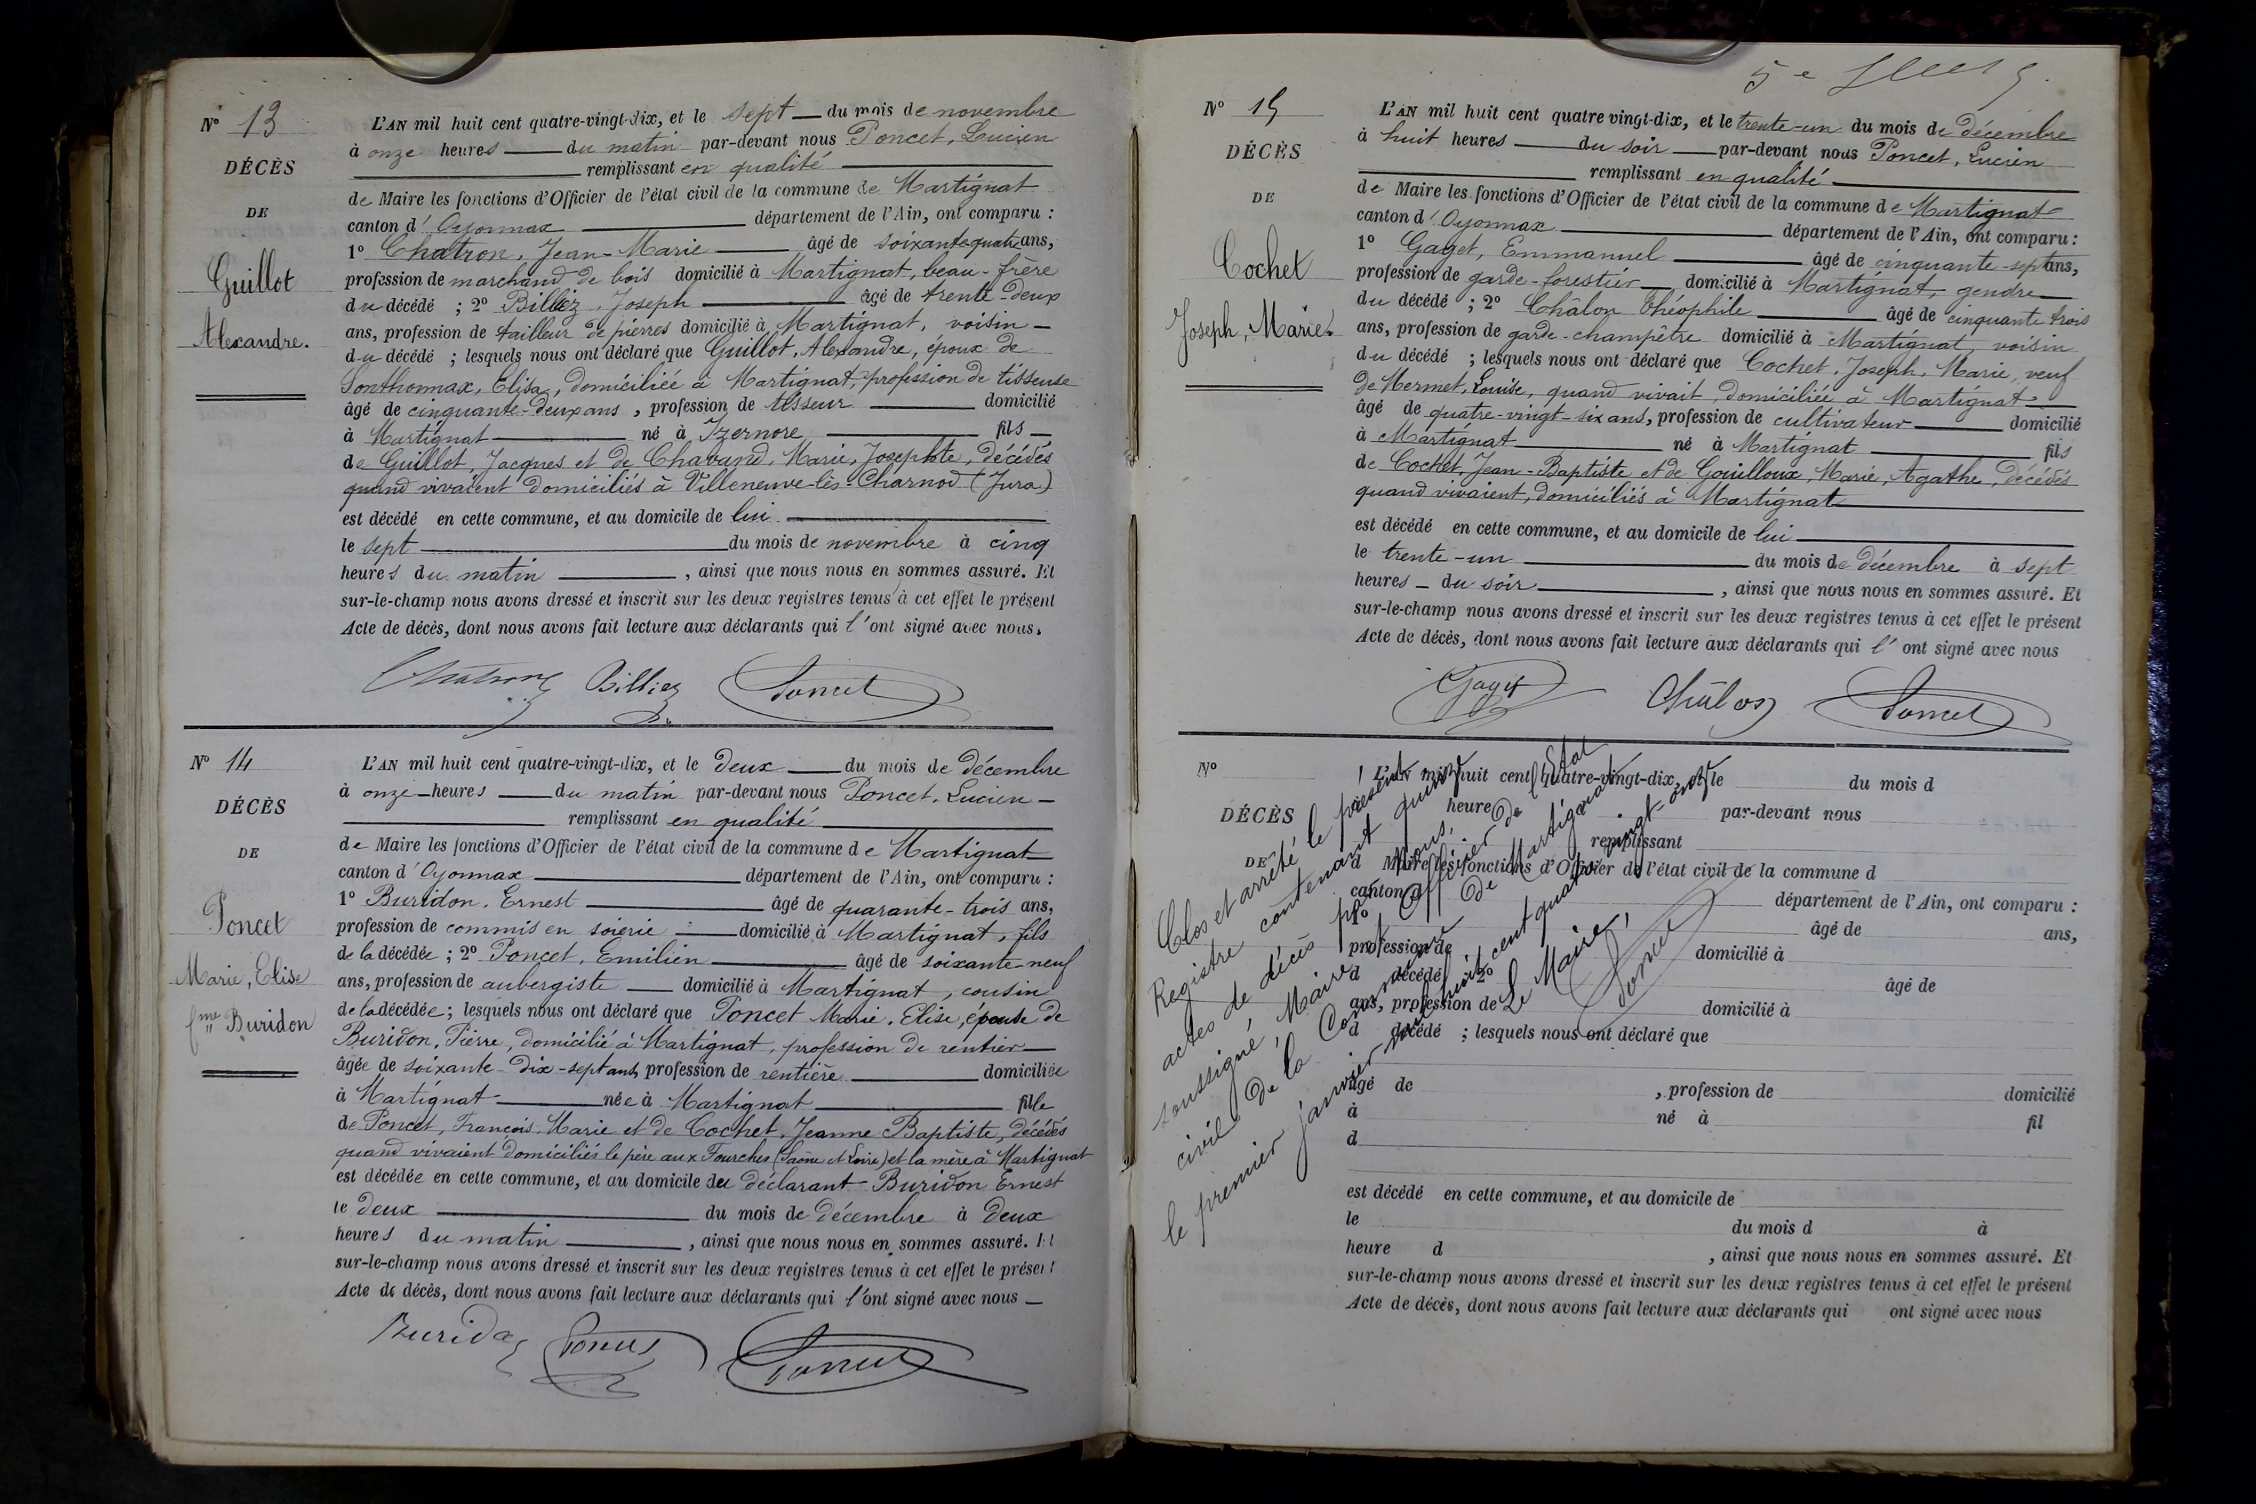 N° 13
DÉCÈS
DE
Guillot
Alexandre.
L'AN mil huit cent quatre-vingt-dix, et le sept du mois de novembre
à onze heures du matin par-devant nous Poncet, Lucien
remplissant en qualité
de Maire les fonctions d'Officier de l'état civil de la commune de Martignat
canton d'Oyonnax département de l'Ain, ont comparu :
1° Chatron, Jean-Marie âgé de soixante quatre ans,
profession de marchand de bois domicilié à Martignat, beau-frère
du décédé ; 2° Billiez, Joseph âgé de trente-deux
ans, profession de tailleur de pierres domicilié à Martignat, voisin
du décédé ; lesquels nous ont déclaré que Guillot, Alexandre, époux de
Sonthonnax, Elisa, domiciliée à Martignat, profession de tisseuse
âgé de cinquante-deux ans, profession de tisseur domicilié
à Martignat né à Izernore fils
de Guillot, Jacques et de Chavand, Marie, Josephte, décédés
quand vivaient domiciliés à Villeneuve-lès-Charnod (Jura)
est décédé en cette commune, et au domicile de lui
le sept du mois de novembre à cinq
heures du matin, ainsi que nous nous en sommes assuré. Et
sur-le-champ nous avons dressé et inscrit sur les deux registres tenus à cet effet le présent
Acte de décès, dont nous avons fait lecture aux déclarants qui l'ont signé avec nous.
Chatron Billiez Poncet
N° 14
DÉCÈS
DE
Poncet
Marie, Elise
fme Buridon
L'AN mil huit cent quatre-vingt-dix, et le deux du mois de décembre
à onze heures du matin par-devant nous Poncet, Lucien
remplissant en qualité
de Maire les fonctions d'Officier de l'état civil de la commune de Martignat
canton d'Oyonnax département de l'Ain, ont comparu :
1° Buridon, Ernest âgé de quarante-trois ans,
profession de commis en soierie domicilié à Martignat, fils
de la décédée ; 2° Poncet, Emilien âgé de soixante-neuf
ans, profession de aubergiste domicilié à Martignat, cousin
de la décédée ; lesquels nous ont déclaré que Poncet Marie, Elise, épouse de
Buridon, Pierre, domicilié à Martignat, profession de rentier
âgée de soixante-dix-sept ans, profession de rentière domiciliée
à Martignat née à Martignat fille
de Poncet, François, Marie et de Cochet, Jeanne Baptiste, décédés
quand vivaient domiciliés le père aux Fourches (Saône et Loire) et la mère à Martignat
est décédée en cette commune, et au domicile du déclarant Buridon Ernest
le deux du mois de décembre à deux
heures du matin, ainsi que nous nous en sommes assuré. Et
sur-le-champ nous avons dressé et inscrit sur les deux registres tenus à cet effet le présent
Acte de décès, dont nous avons fait lecture aux déclarants qui l'ont signé avec nous
Buridon Poncet Poncet
5e
N° 15
DÉCÈS
DE
Cochet
Joseph, Marie.
L'AN mil huit cent quatre vingt-dix, et le trente-un du mois de décembre
à huit heures du soir par-devant nous Poncet, Lucien
remplissant en qualité
de Maire les fonctions d'Officier de l'état civil de la commune de Martignat
canton d'Oyonnax département de l'Ain, ont comparu :
1° Gaget, Emmanuel âgé de cinquante-sept ans,
profession de garde-forestier domicilié à Martignat, gendre
du décédé ; 2° Châlon Théophile âgé de cinquante trois
ans, profession de garde-champêtre domicilié à Martignat, voisin
du décédé ; lesquels nous ont déclaré que Cochet, Joseph, Marie, veuf
de Mermet, Louise, quand vivait, domiciliée à Martignat
âgé de quatre-vingt-six ans, profession de cultivateur domicilié
à Martignat né à Martignat fils
de Cochet, Jean-Baptiste et de Gouilloux, Marie, Agathe, décédés
quand vivaient, domiciliés à Martignat
est décédé en cette commune, et au domicile de lui
le trente-un du mois de décembre à sept
heures du soir, ainsi que nous nous en sommes assuré. Et
sur-le-champ nous avons dressé et inscrit sur les deux registres tenus à cet effet le présent
Acte de décès, dont nous avons fait lecture aux déclarants qui l'ont signé avec nous
Gaget Châlon Poncet
N°
DÉCÈS
DE
L'AN mil huit cent quatre-vingt-dix, et le du mois d
heure par-devant nous
remplissant
d Maire les fonctions d'Officier de l'état civil de la commune d
canton d département de l'Ain, ont comparu :
1° âgé de ans,
profession de domicilié à
d décédé ; 2° âgé de
ans, profession de domicilié à
d décédé ; lesquels nous ont déclaré que
âgé de , profession de domicilié
à né à fil
d
est décédé en cette commune, et au domicile de
le du mois d à
heure d , ainsi que nous nous en sommes assuré. Et
sur-le-champ nous avons dressé et inscrit sur les deux registres tenus à cet effet le présent
Acte de décès, dont nous avons fait lecture aux déclarants qui ont signé avec nous
Clos et arrêté le présent
Registre contenant quinze
actes de décès par nous,
soussigné, Maire et Officier de l'Etat
civil de la Commune de Martignat
le premier janvier mil huit cent quatre vingt-onze
Le Maire,
Poncet